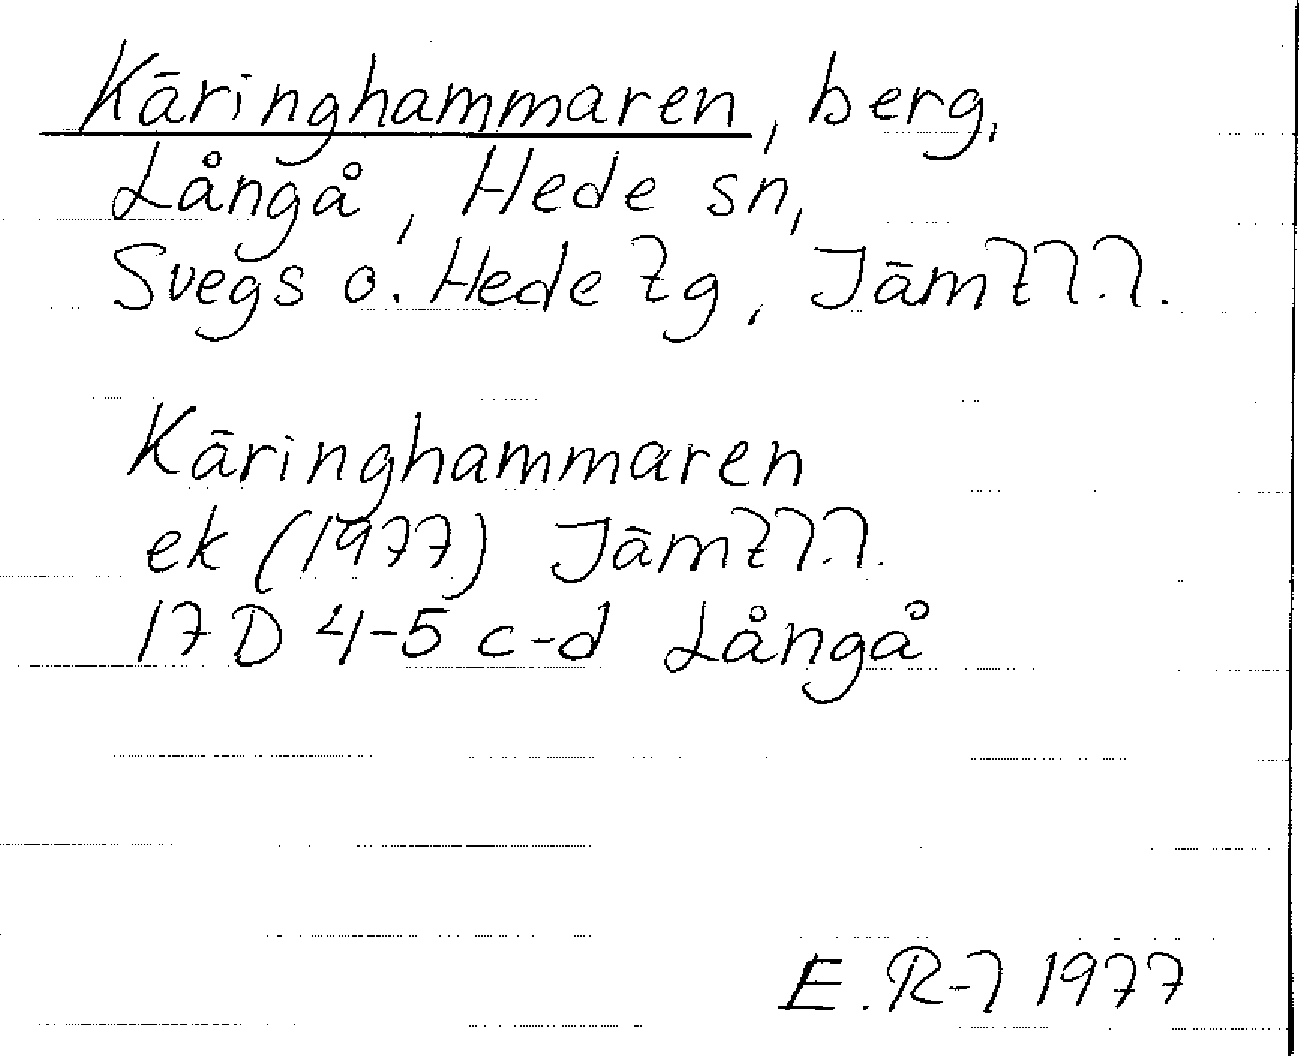 Käringhammaren, berg,
Långå, Hede sn,
Svegs o. Hede tg, Jämtl.l.
Käringhammaren
ek (1977) Jämtl.l.
17D 4-5 c-d Långå
E.R-l 1977